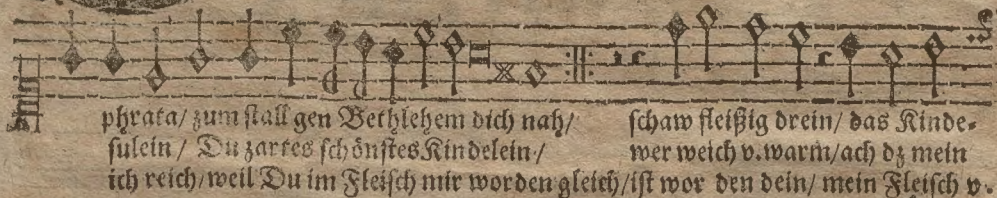 phrata/ zum stall gen Bethlehem dich nah/ schaw fleißig drein/ das Kinde-
sulein/ Du zartes schönstes Kindelein/ wer weich v. warm/ ach dz mein
ich reich/ weil Du im Fleisch mir worden gleich/ ist wor den dein/ mein Fleisch v.